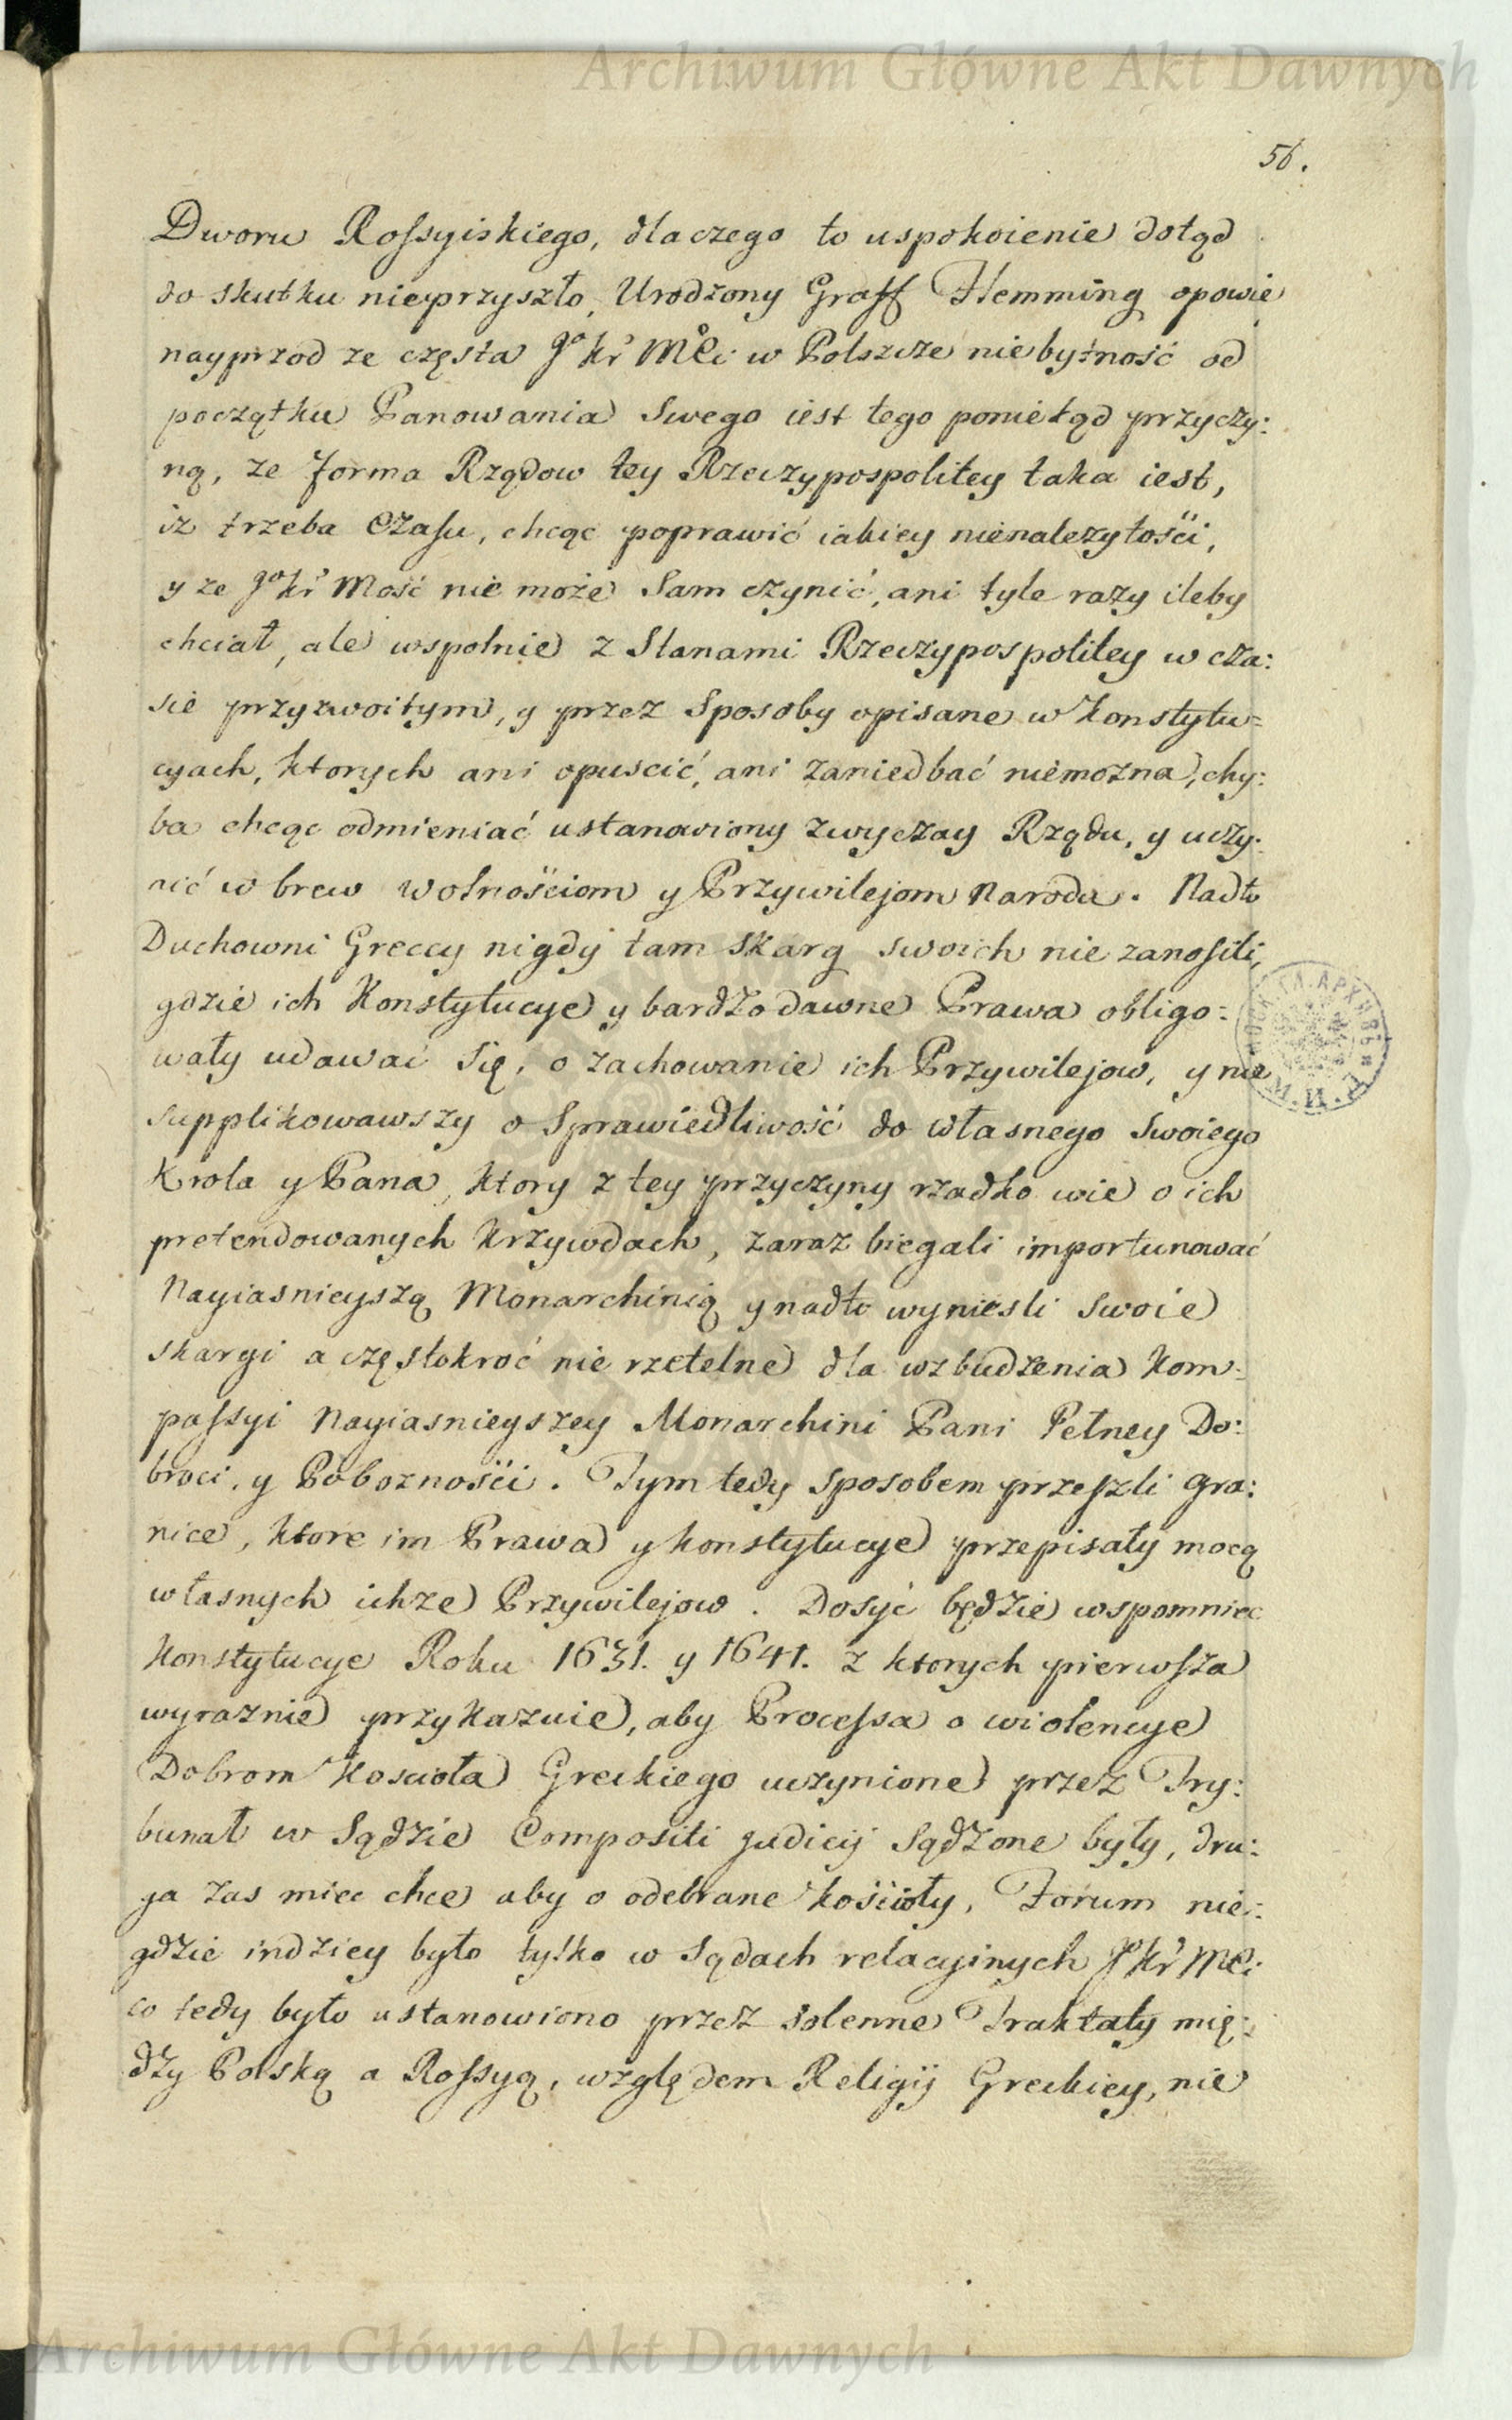 Archiwum Główne Akt Dawnych
56.
Dworu Rossyiskiego, dlaczego to uspokoienie dotąd
do skutku nieprzyszło, Urodzony Graff Flemming opowie
nayprzod ze częsta Jo Kr Mci w Polszcze niebytność od
początku Panowania Swego iest tego poniekąd przyczy:
ną, ze forma Rządow tey Rzeczypospolitey taka iest,
iz trzeba Czasu, chcąc poprawić iakiey nienalezytości,
y ze Jo Kr Mość nie może Sam czynić, ani tyle razy ileby
chciał, ale wspolnie z Stanami Rzeczypospolitey w cza:
sie przyzwoitym, y przez Sposoby opisane w Konstytu=
cyach, ktorych ani opuscić, ani zaniedbać niemozna, chy:
ba chcąc odmieniać ustanowiony zwyczay Rządu, y uczy:
nić wbrew wolnościom y Przywilejom Narodu. Nadto
Duchowni Greccy nigdy tam Skarg swoich nie zanosili,
gdzie ich Konstytucye y bardzo dawne Prawa obligo:
wały udawać Się, o zachowanie ich Przywilejow, y nie
supplikowawszy o Sprawiedliwość do własnego Swoiego
Krola y Pana, ktory z tey przyczyny rzadko wie o ich
pretendowanych Krzywdach, zaraz biegali importunować
Nayiasnieyszą Monarchinią y nadto wyniesli Swoie
skargi a częstokroć nie rzetelne dla wzbudzenia Kom:
passyi Nayiasnieyszey Monarchini Pani Pełney Do:
broci, y Poboznosci. Tym tedy Sposobem przeszli gra:
nice, ktore im Prawa y Konstytucye przepisały mocą
własnych ichze Przywilejow. Dosyć będzie wspomniec
Konstytucye Roku 1631. y 1641. z ktorych pierwsza
wyraznie przykazuie, aby Processa o wiolencye
Dobrom Koscioła Greckiego uczynione przez Try:
bunał w Sądzie Compositi judicij Sądzone były, dru:
ga zas miec chce aby o odebrane Kościoły, Forum nie:
gdzie indziey było tylko w Sądach relacyinych Jo Kr Mci
co tedy było ustanowiono przez solenne Traktaty mię:
dzy Polską a Rossyą, względem Religij Greckiey, nie
Archiwum Główne Akt Dawnych